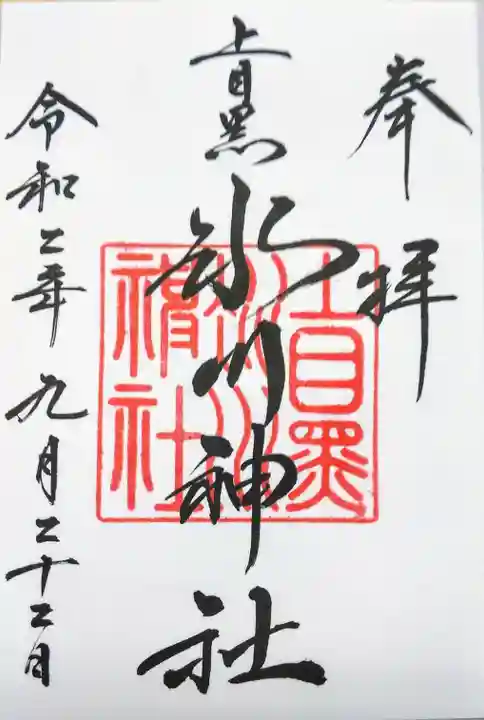 奉拝
上目黒
氷川神社
上目黒氷川神社
令和二年九月二十二日